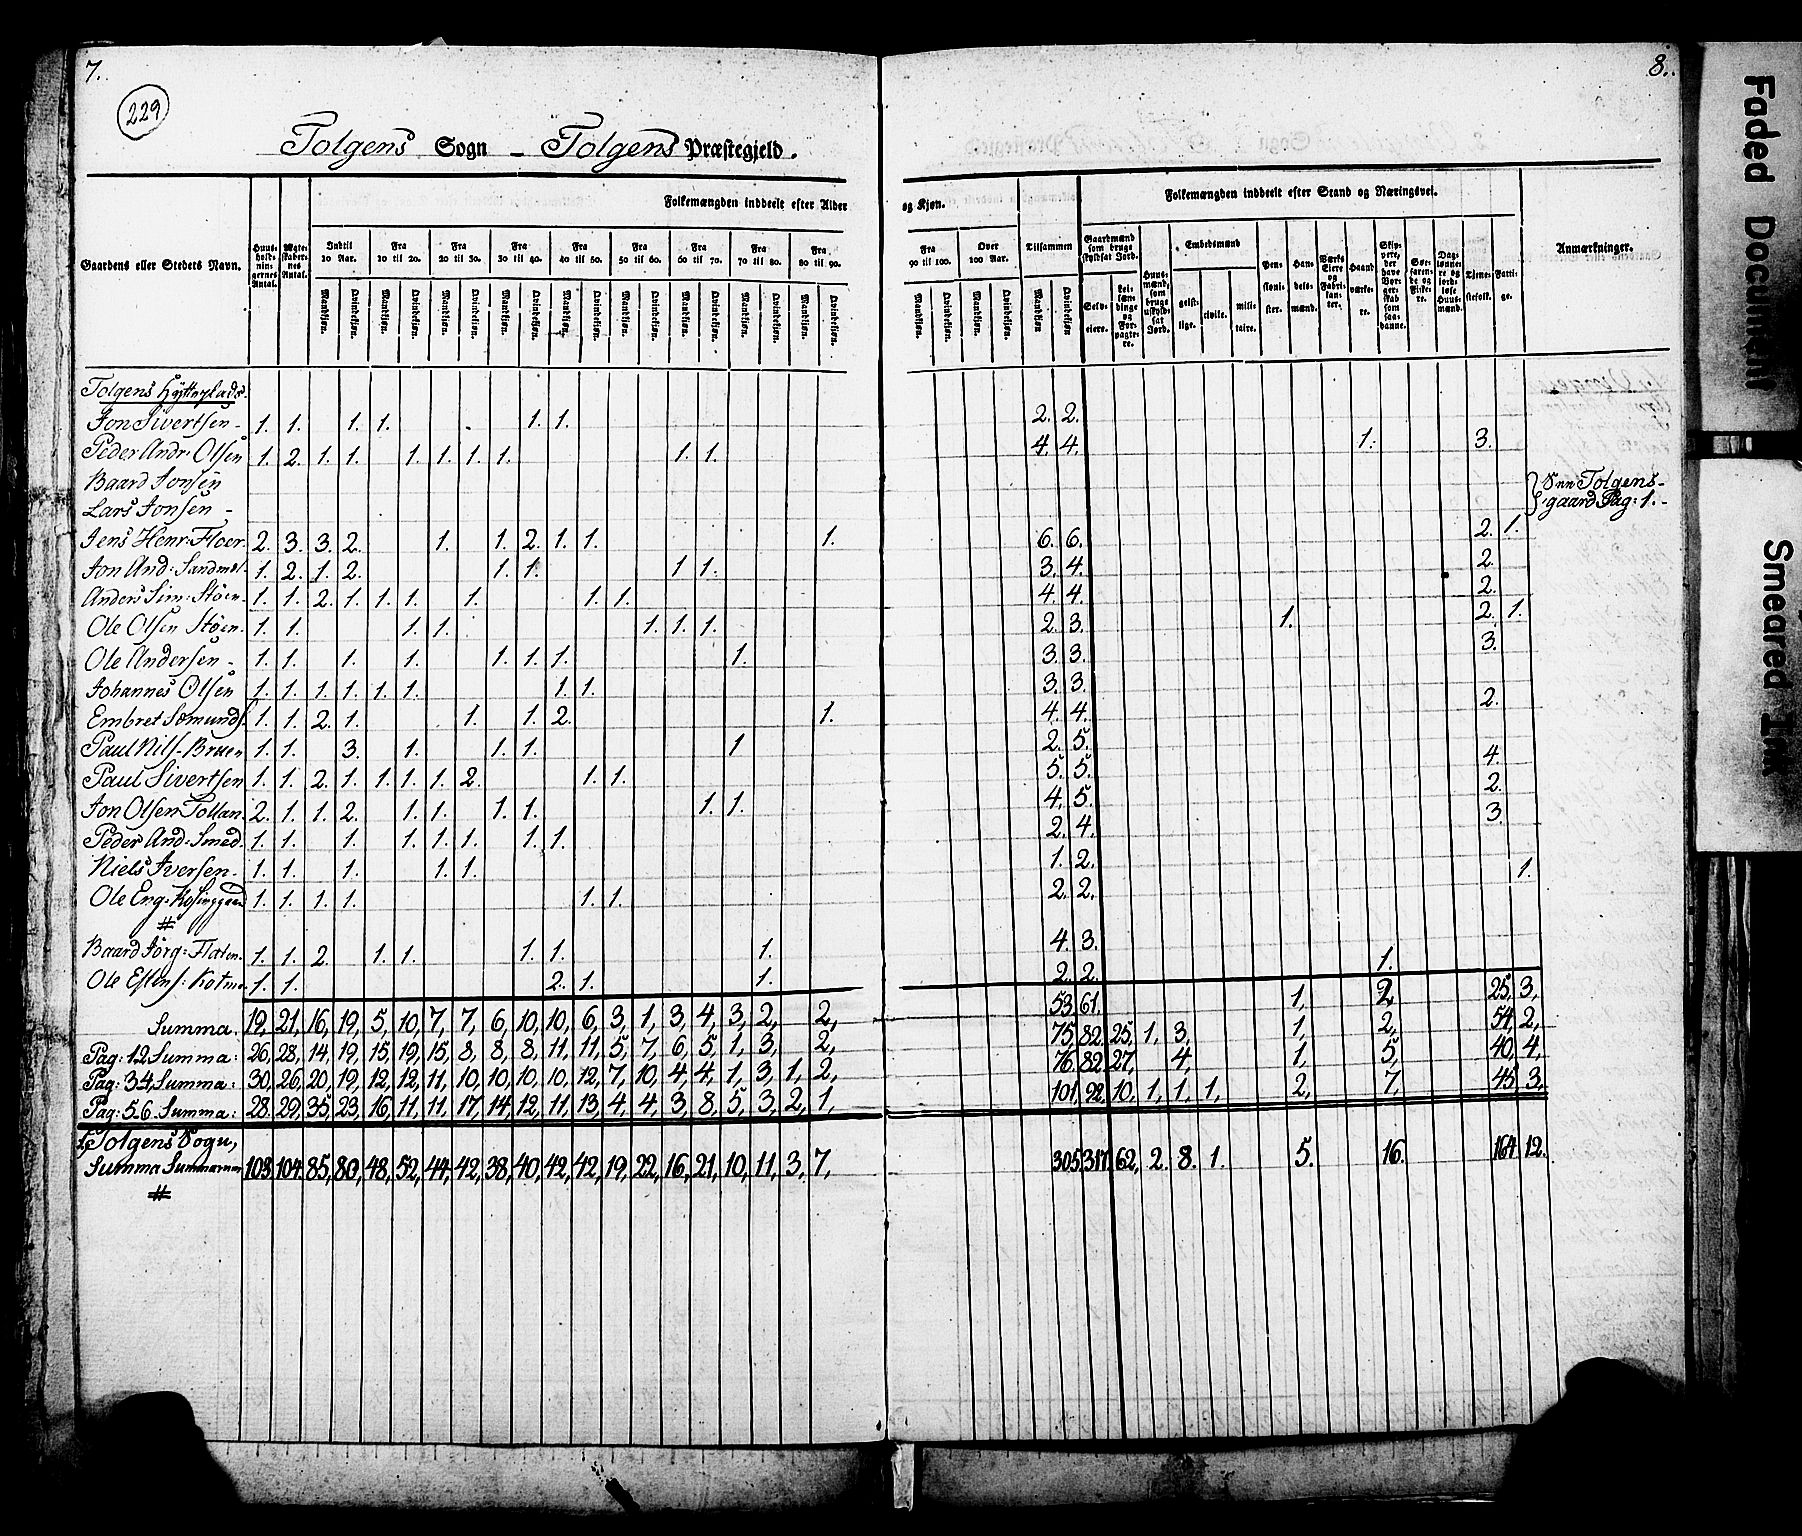 7.
8.
229
Tolgens Sogn - Tolgens Præstegjeld.
Folkemængden inddeelt efter Alder og Kjøn.
Folkemængden inddeelt efter Stand og Næringsvei.
Gaardens eller Stedets Navn.
Huusholdningernes Antal.
Ægteskabernes Antal.
Indtil 10 Aar.
Fra 10 til 20.
Fra 20 til 30.
Fra 30 til 40.
Fra 40 til 50.
Fra 50 til 60.
Fra 60 til 70.
Fra 70 til 80.
Fra 80 til 90.
Fra 90 til 100.
Over 100 Aar.
Tilsammen
Mandkjøn. Qvindekjøn.
Gaardmænd som bruge skyldsat Jord.
Selveiere.
Leilændinge og Forpagtere.
Huusmænd, som bruge uskyldsat Jord.
Embedsmænd
geistlige. civile. militaire.
Pensionister.
Handelsmænd.
Værks Eiere og Fabrikanter.
Haandværkere.
Skippere, der have Borgerskab som saadanne.
Søefarende og Fiskere.
Daglønnere og jordløse Huusmænd.
Tjenestefolk.
Fattige.
Anmærkninger.
Tolgens Hytteplads.
Jon Sivertsen - 1. 1. 1. 1. 1. 1. 2. 2.
Peder Andr: Olsen 1. 2. 1. 1. 1. 1. 1. 1. 1. 1. 4. 4. 1. 3.
Baard Jonsen
Lars Jonsen -
Vnn Tolgens-
gaard Pag: 1. -
Jens Henr: Floer. 2. 3. 3. 2. 1. 1. 2. 1. 1. 1. 6. 6. 2. 1.
Jon And: Sandmæl. 1. 2. 1. 2. 1. 1. 1. 1. 3. 4. 2.
Anders Sim: Støen. 1. 1. 2. 1. 1. 1. 1. 1. 1. 4. 4. 2.
Ole Olsen Støen. 1. 1. 1. 1. 1. 1. 1. 2. 3. 1. 2. 1.
Ole Andersen - 1. 1. 1. 1. 1. 1. 1. 1. 3. 3. 3.
Johannes Olsen 1. 1. 1. 1. 1. 1. 1. 1. 3. 3.
Embret Sæmunds. 1. 1. 2. 1. 1. 1. 2. 1. 4. 4. 2.
Paul Nils. Bruen 1. 1. 3. 1. 1. 1. 1 2. 5.
Paul Sivertsen 1. 1. 2. 1. 1. 1. 1. 2. 1. 1. 5. 5. 4.
Jon Olsen Tollan. 2. 1. 1. 2. 1. 1. 1. 1. 1. 1. 4. 5. 2.
Peder And: Smed. 1. 1. 1. 1. 1. 1. 1. 1. 2. 4. 3.
Niels Iversen. 1. 1. 1. 1. 1. 1. 2.
Ole Eng: 1. 1. 1. 1. 1. 1. 2. 2. 1.
#
Baard Jörg: Flaten. 1. 1. 2. 1. 1. 1. 1. 1. 4. 3.
Ole Estens: Kotmo. 1. 1. 2. 1. 1. 2. 2. 1.
Summa. 19, 21, 16, 19, 5, 10, 7, 7, 6, 10, 10, 6, 3, 1, 3, 4, 3, 2, 2, 53 61. 1, 2, 25, 3,
Pag: 1.2 Summa: 26, 28, 14, 19, 15, 19, 15, 8, 8, 8, 11, 11, 5, 7, 6, 5, 1, 3, 2, 75, 82, 25, 1, 3, 1, 2, 54, 2,
Pag: 34 Summa: 30, 26, 20, 19, 12, 12, 11, 10, 10, 10, 10, 12, 7, 10, 4, 4, 1, 3, 1, 2, 76, 82, 27, 4, 1, 5, 40, 4,
Pag: 5.6 Summa: 28, 29, 35, 23, 16, 11, 11, 17, 14, 12, 11, 13, 4, 4, 3, 8, 5, 3, 2, 1, 101, 92, 10, 1, 1, 1, 2, 7, 45, 3,
Tolgens Sogn,
Summa Summarum 103. 104. 85, 80, 48, 52, 44, 42, 38, 40, 42, 42, 19, 22, 16, 21, 10, 11, 3, 7, 305 317. 62, 2. 8. 1. 5. 16. 164 12.
#
Faded Document
Smeared Ink